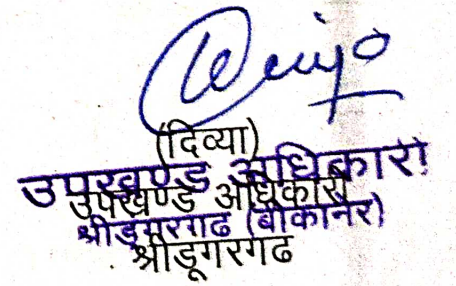 (दिव्या)
उपखण्ड अधिकारी
उपखण्ड अधिकारी
श्रीडूंगरगढ (बीकानेर)
श्रीडूगरगढ